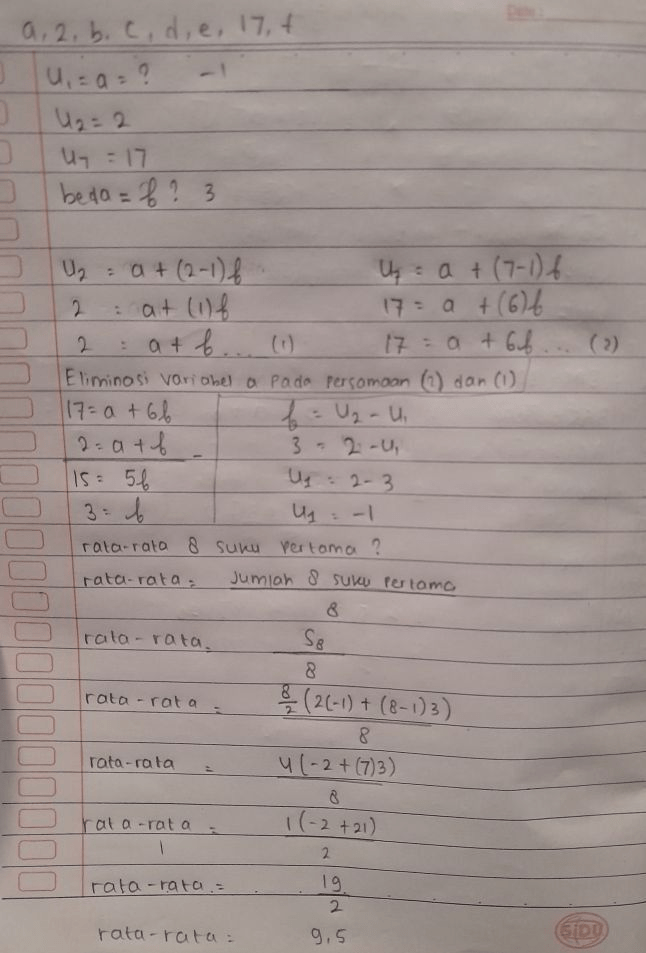 Date:
a, 2, b, c, d, e, 17, f
U₁ = a = ? -1
U₂ = 2
U₇ = 17
beda = b ? 3
U₂ = a + (2-1)b
2 = a + (1)b
2 = a + b ... (1)
U₇ = a + (7-1)b
17 = a + (6)b
17 = a + 6b ... (2)
Eliminasi variabel a pada persamaan (2) dan (1)
17 = a + 6b
2 = a + b -
15 = 5b
3 = b
b = U₂ - U₁
3 = 2 - U₁
U₁ = 2 - 3
U₁ = -1
rata-rata 8 suku pertama ?
rata-rata = Jumlah 8 suku pertama
8
rata-rata = S₈
8
rata-rata = 8/2 (2(-1) + (8-1)3)
8
rata-rata = 4(-2 + (7)3)
8
rata-rata = 1(-2 + 21)
1 2
rata-rata = 19
2
rata-rata = 9,5
SIDU